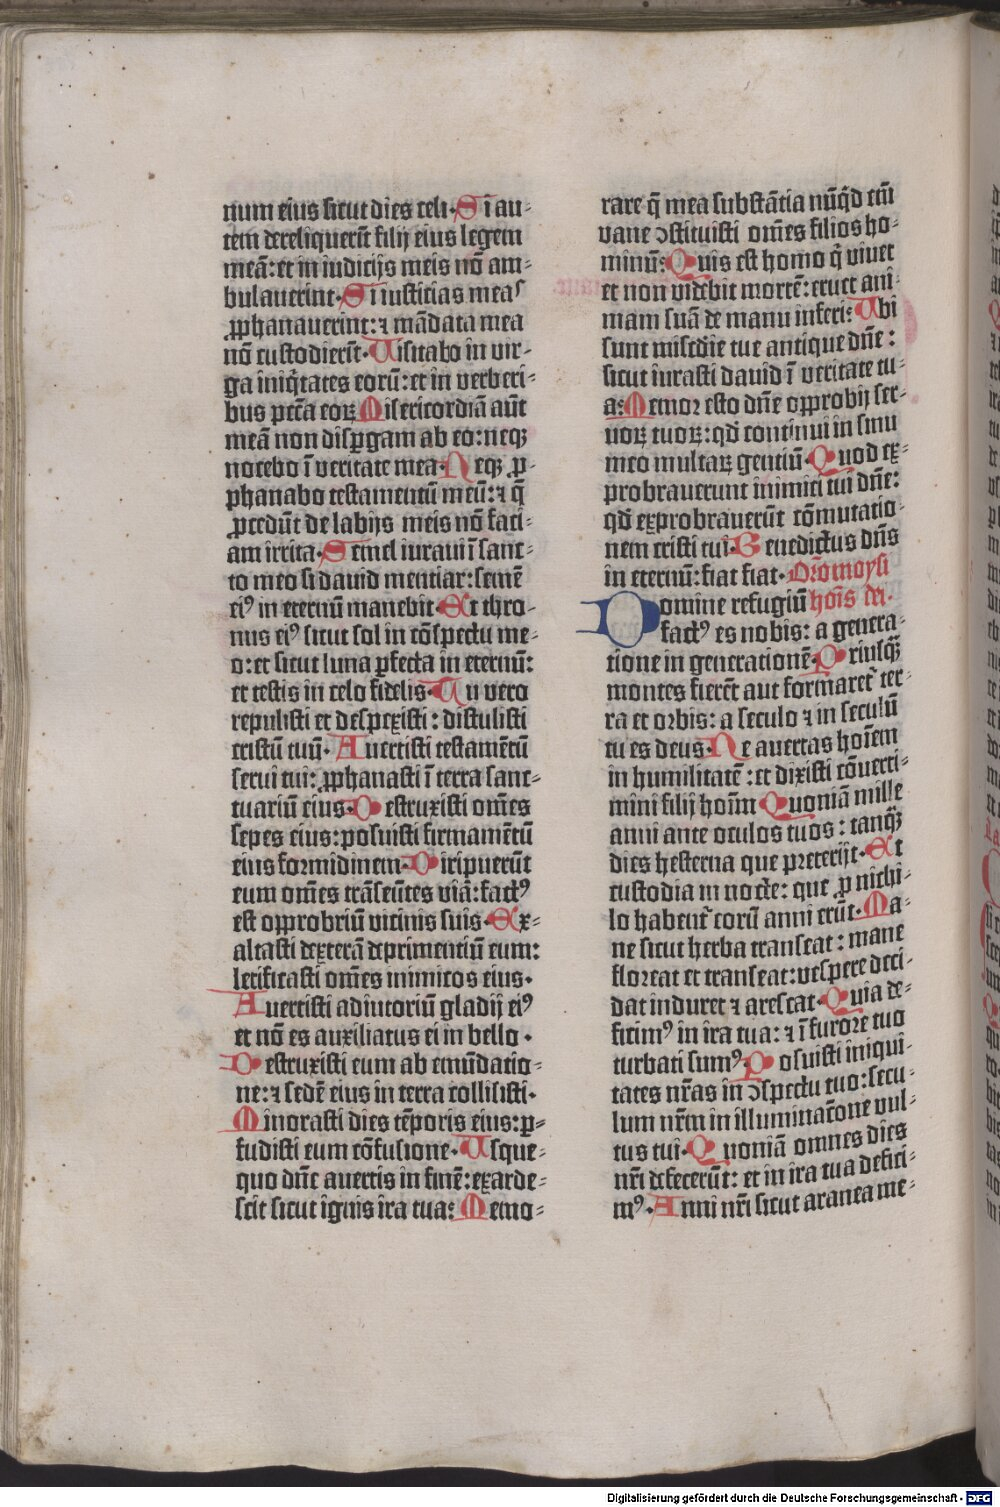 num eius sicut dies celi. Si au-
tem dereliquerūt filij eius legem
meā: et in iudicijs meis nō am-
bulauerint. Si iusticias meas
ꝓphanauerint: ⁊ mādata mea
nō custodierūt. Uisitabo in vir-
ga iniq̄tates eorū: et in verberi-
bus pctā̄ eoꝝ Misericordiā aūt
meā non disꝑgam ab eo: neqꝫ
nocebo ī veritate mea. Neqꝫ ꝓ-
phanabo testamentū meū: ⁊ q̄
ꝓcedūt de labijs meis nō faci-
am irrita. Semel iuraui ī sanc-
to meo si dauid mentiar: semē
eiꝰ in eternū manebit. Et thro-
nus eiꝰ sicut sol in cōspectu me-
o: et sicut luna ꝑfecta in eternū:
et testis in celo fidelis. Tu vero
repulisti et despexisti: distulisti
cristū tuū. Auertisti testamētū
serui tui: ꝓphanasti ī terra sanc-
tuariū eius. Destruxisti om̄es
sepes eius: posuisti firmamētū
eius formidinem. Diripuerūt
eum om̄es trāseūtes viā: factꝰ
est opprobriū vicinis suis. Ex-
altasti dexterā deprimentiū eum:
letificasti om̄es inimicos eius.
Auertisti adiutoriū gladij eiꝰ
et nō es auxiliatus ei in bello.
Destruxisti eum ab emūdatio-
ne: ⁊ sedē eius in terra collisisti.
Minorasti dies tēporis eius: ꝑ-
fudisti eum cōfusione. Usque-
quo dn̄e auertis in finē: exarde-
scit sicut ignis ira tua: Memo-
rare q̄ mea substātia nūq̄d em̄
vane ↄstituisti om̄es filios ho-
minū: Quis est homo q̄ viuet
et non videbit mortē: eruet ani-
mam suā de manu inferi: Ubi
sunt mīscdie tue antique dn̄e:
sicut iurasti dauid ī veritate tu-
a: Memor esto dn̄e opprobij ser-
uoꝝ tuoꝝ: qd̄ continui in sinu
meo multaꝝ gentiū. Quod ex-
probrauerunt inimici tui dn̄e:
qd̄ exprobrauerūt cōmutatio-
nem cristi tui. Benedictus dn̄s
in eternū: fiat fiat. Or̄o moysi
Domine refugiū hoīs dei.
factꝰ es nobis: a genera-
tione in generationē. Priusqꝫ̄
montes fierēt aut formaret᷑ ter-
ra et orbis: a seculo ⁊ in seculū
tu es deus. Ne auertas hoīem
in humilitatē: et dixisti cōuerti-
mini filij hoīm Quoniā mille
anni ante oculos tuos: tanqꝫ̄
dies hesterna que preterijt. Et
custodia in nocte: que ꝓ nichi-
lo habent᷑ eorū anni erūt. Ma-
ne sicut herba transeat: mane
floreat et transeat: vespere deci-
dat induret ⁊ arescat. Quia de-
ficimꝰ in ira tua: ⁊ ī furore tuo
turbati sumꝰ. Posuisti iniqui-
tates nr̄as in ↄspectu tuo: secu-
lum nr̄m in illuminac̄one vul-
tus tui. Quoniā omnes dies
nr̄i defecerūt: et in ira tua defeci-
mꝰ. Anni nr̄i sicut aranea me-
Digitalisierung gefördert durch die Deutsche Forschungsgemeinschaft - DFG